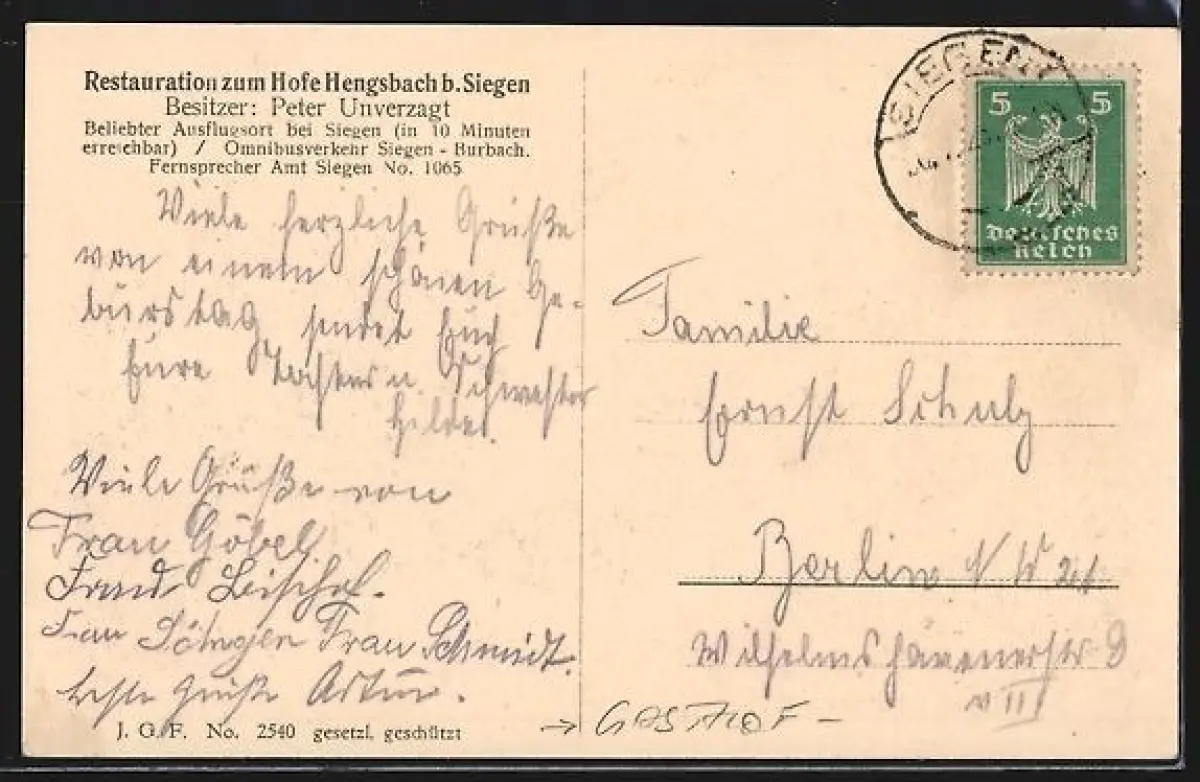 Restauration zum Hofe Hengsbach b. Siegen
Besitzer: Peter Unverzagt
Beliebter Ausflugsort bei Siegen (in 10 Minuten
erreichbar) / Omnibusverkehr Siegen - Burbach.
Fernsprecher Amt Siegen No. 1065
Viele herzliche Grüße
von einem schönen Ge-
burstag sendet Euch
Eure Tochter u. Schwester
Hilde.
Viele Grüße von
Frau Göbel
Frau
Frau Frau Schmidt.
beste Grüße Artur.
J. G. F. No. 2540 gesetzl. geschützt
SIEGEN
5 5
Deutsches
Reich
Familie
Ernst Schulz
Berlin N W 21
Wilhelmshavenerstr 9
v II
→ GASTHOF -